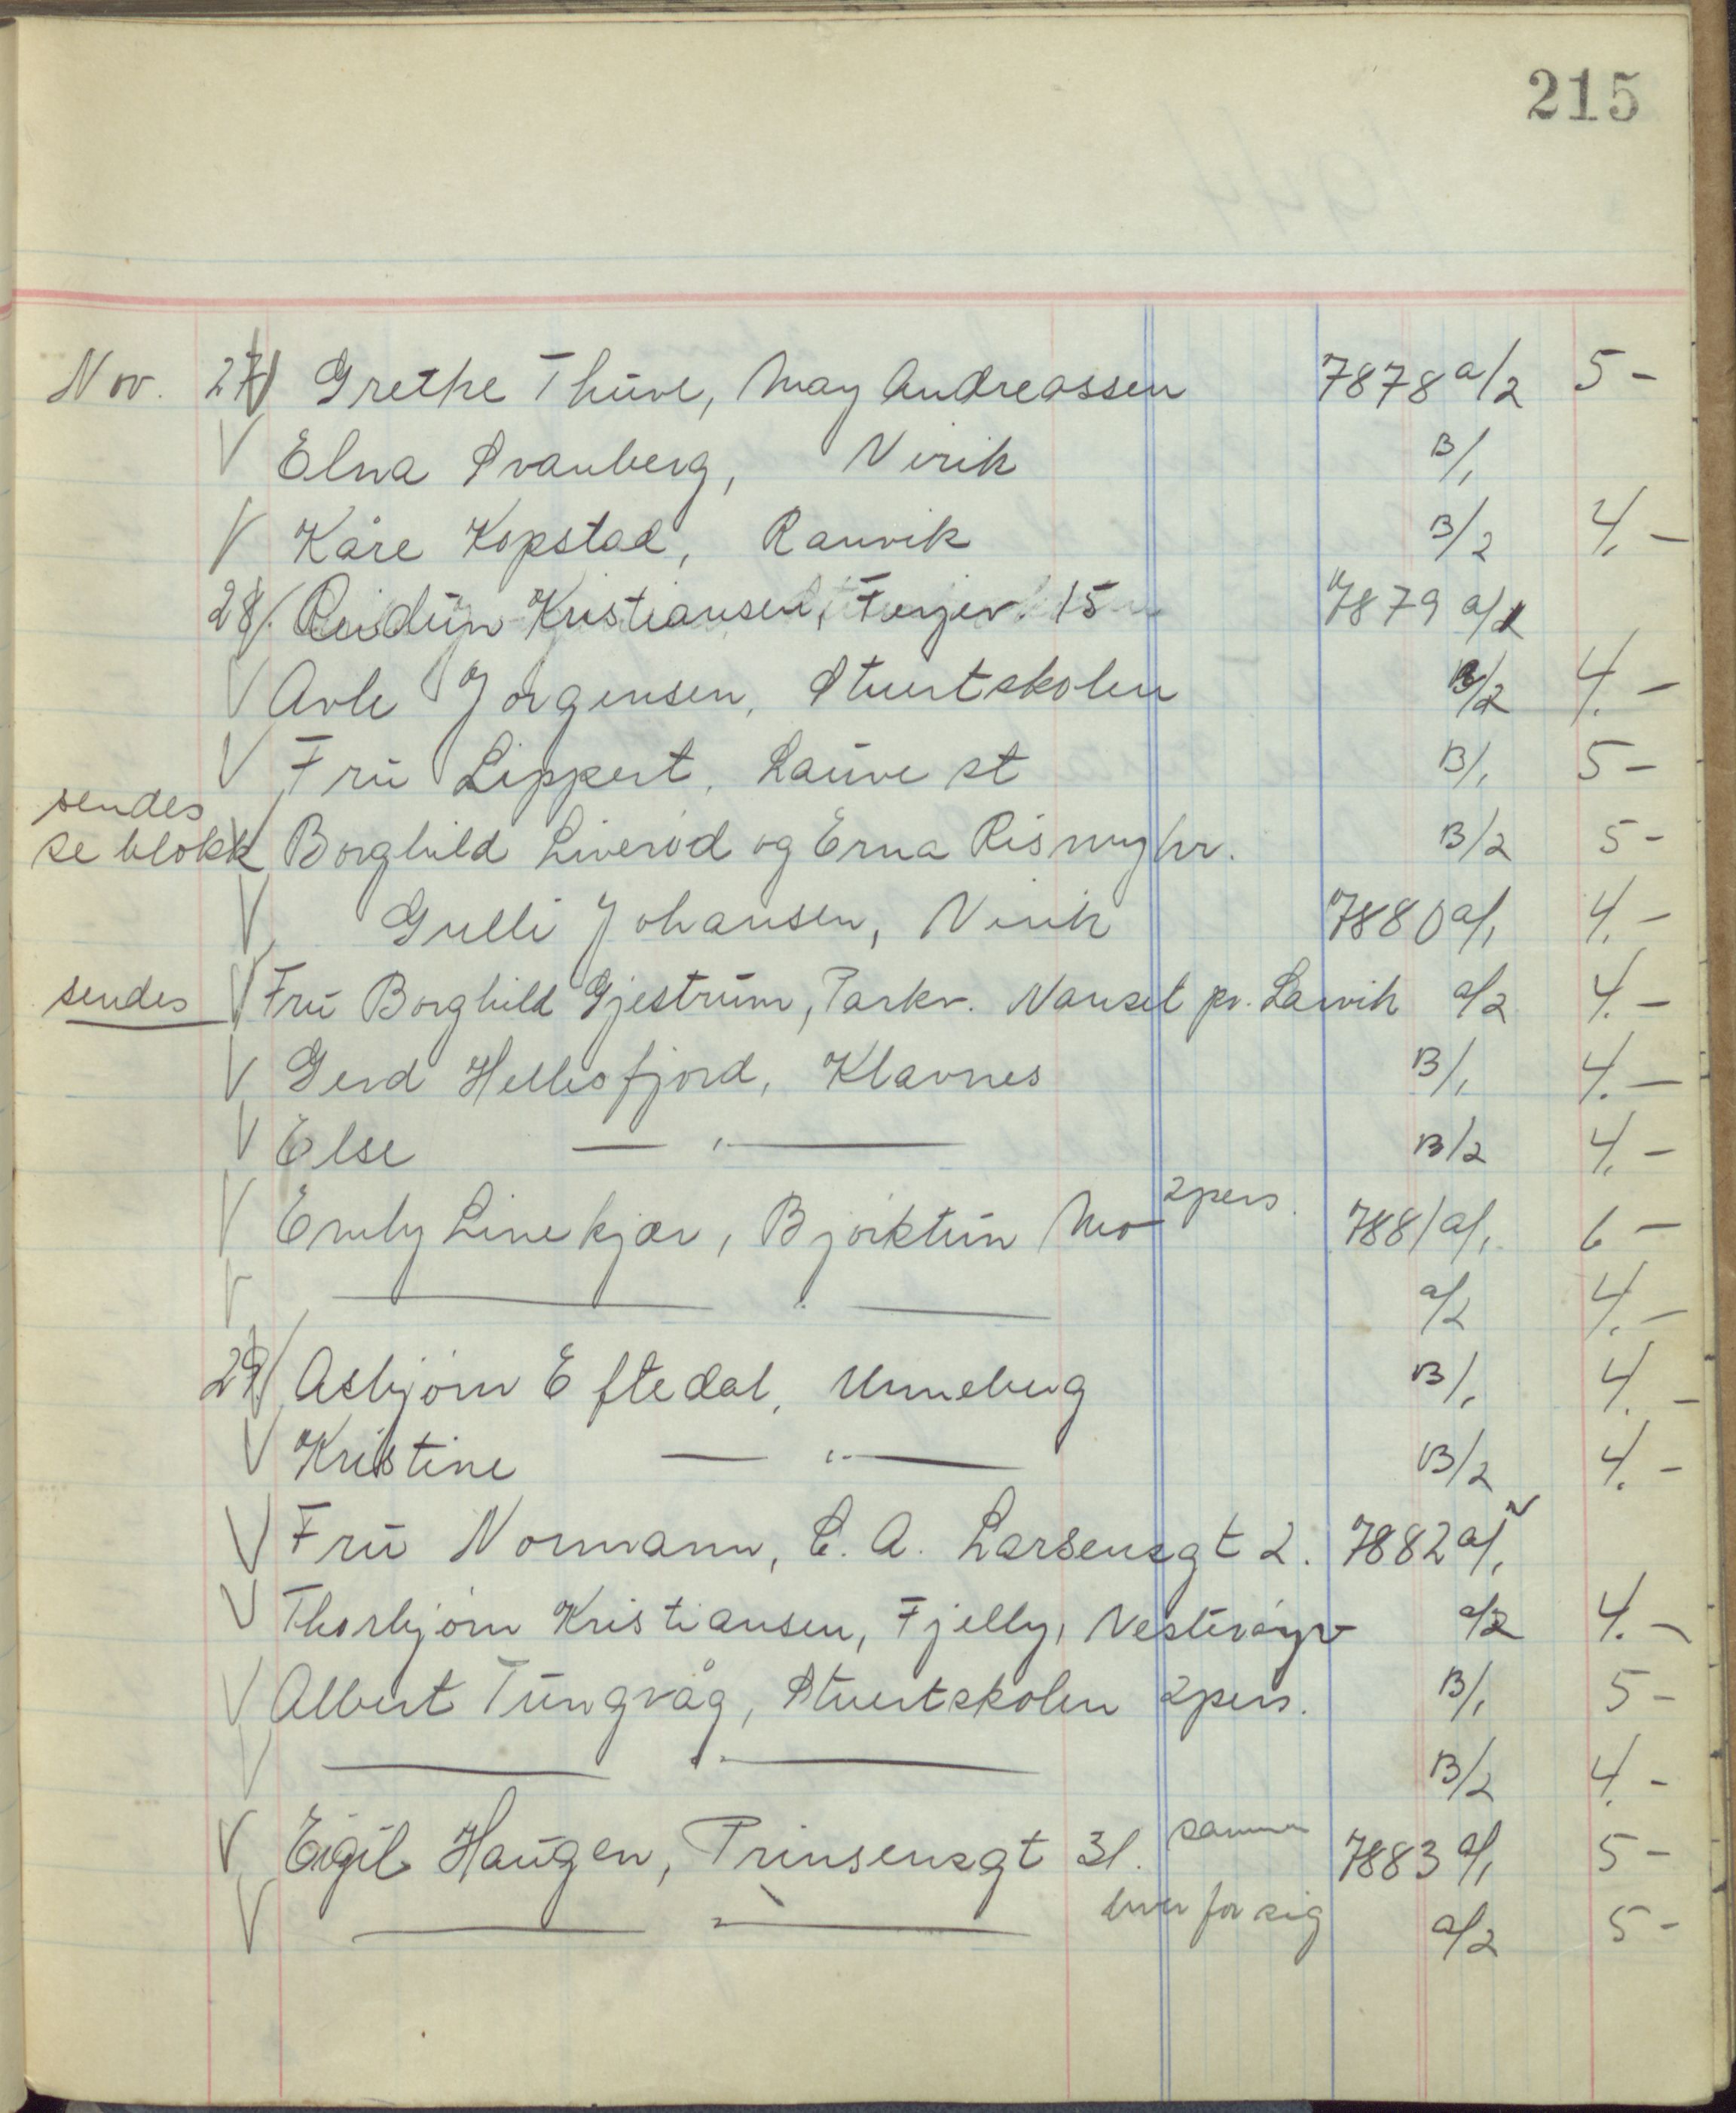 215
Nov. 27 V Grethe Thüve, May Andreassen 7878 a/2 5-
V Elna Svanberg, Virik B/1
V Kåre Kopstad, Ranvik B/2 4.-
28/. Reidün Kristiansen, Færjev. 15 7879 a/1
V Arle Jorgensen, Stuertskolen B/2 4.-
V Frü Lippert. Laüve st B/1 5-
sendes
se blokk V Borghild Liverød og Erna Rismyhr. B/2 5-
V Gulli Johansen, Virik 7880 a/1 4.-
sendes V Frü Borghild Gjestrüm, Parkv. Nanset pr. Larvik a/2 4.-
V Gerd Hellesfjord, Klavnes B/1 4.-
V Else — " — B/2 4.-
V Emly Linekjær, Bjørktün Mo 2 pers. 7881 a/1. 6-
V — " — a/2 4.-
29/ V Asbjørn Eftedal, Unneberg B/1 4.-
V Kristine — " — B/2 4.-
V Frü Normann, C. A. Larsensgt 2. 7882 a/1
V Thorbjørn Kristiansen, Fjelly, Vesterøyv a/2 4.-
V Albert Tüngvåg, Stuertskolen 2 pers. B/1 5-
V — " — B/2 4.-
V Eigil Haügen, Prinsensgt 31. sammen 7883 a/1 5-
V — " — hver for sig a/2 5-